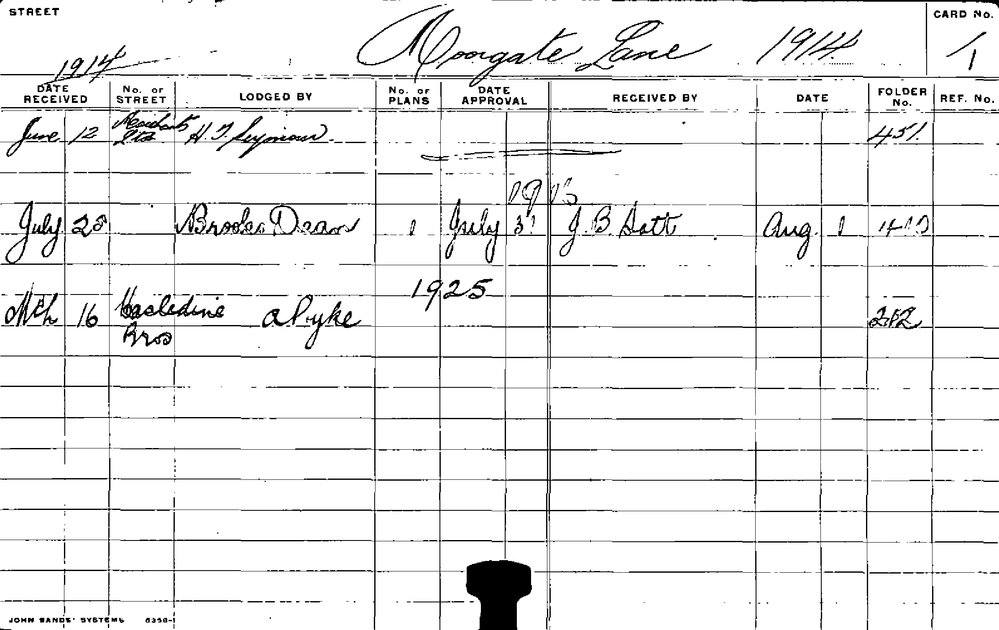 STREET Moorgate Lane 1914 CARD No. 1
1914
DATE RECEIVED No. OF STREET LODGED BY No. OF PLANS DATE APPROVAL RECEIVED BY DATE FOLDER No. REF. No.
June 12 Merchants Ltd H. T. Seymour 451
July 28 Brooks Dean 1 July 31 J. B. Aug 1
1925
Mch 16 Hasledine Bros a Pyke 282
JOHN SANDS' SYSTEMS